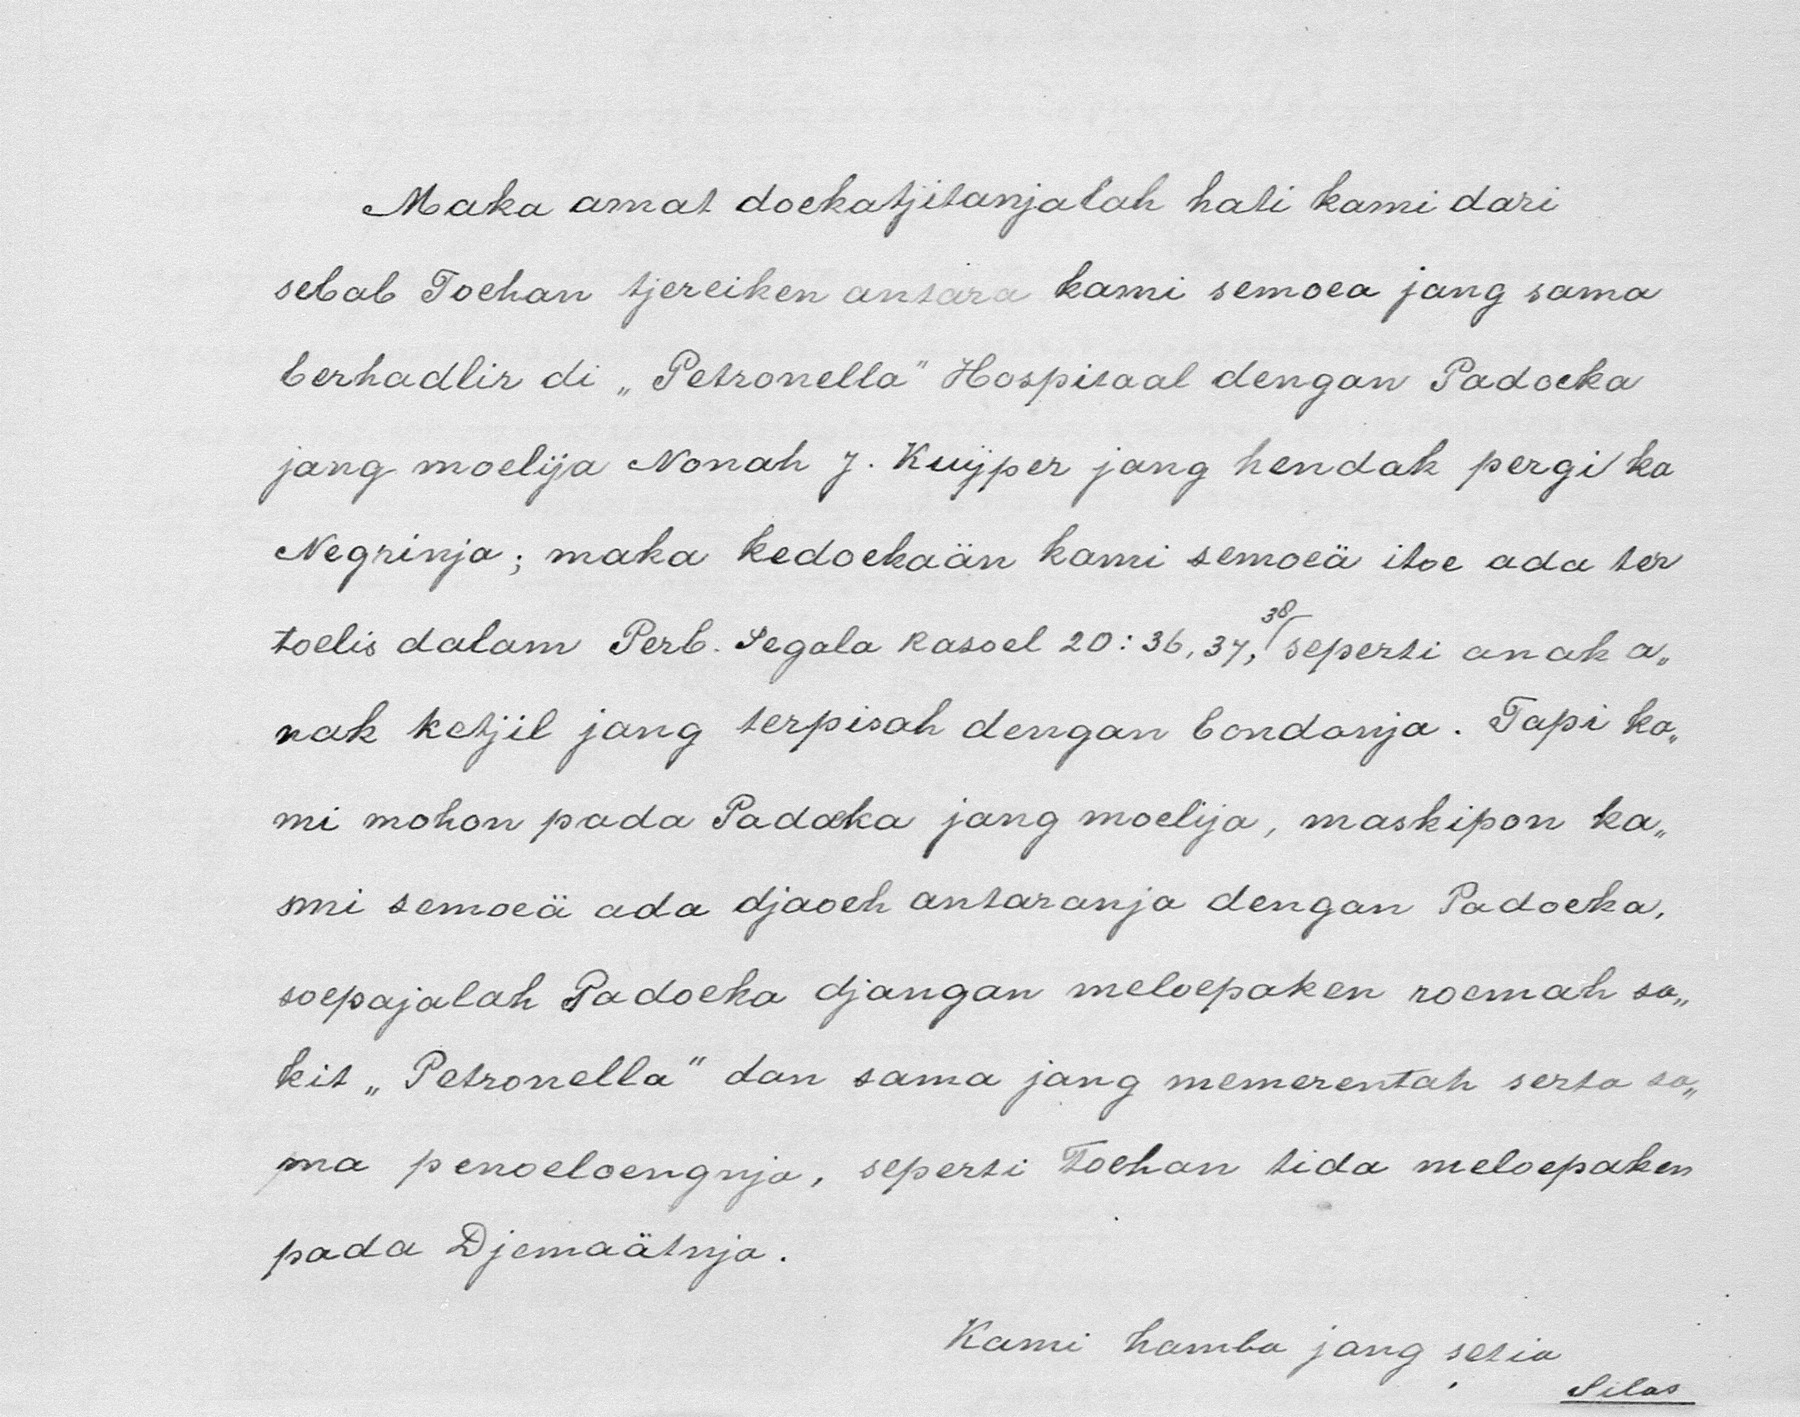 Maka amat doekatjitanjalah hati kami dari
sebab Toehan tjereiken antara kami semoea jang sama
berhadlir di „Petronella" Hospitaal dengan Padoeka
jang moelija Nonah J. Kuÿper jang hendak pergi ka
Negrinja; maka kedoekaän kami semoeä itoe ada ter
toelis dalam Perb. Segala Rasoel 20: 36, 37, 38 seperti anak a„
nak ketjil jang terpisah dengan bondanja. Tapi ka„
mi mohon pada Padoeka jang moelija, maskipon ka„
mi semoeä ada djaoeh antaranja dengan Padoeka,
soepajalah Padoeka djangan meloepaken roemah sa„
kit „Petronella" dan sama jang memerentah serta sa„
ma penoeloengnja, seperti Toehan tida meloepaken
pada Djemaätnja.
Kami hamba jang setia
Silas